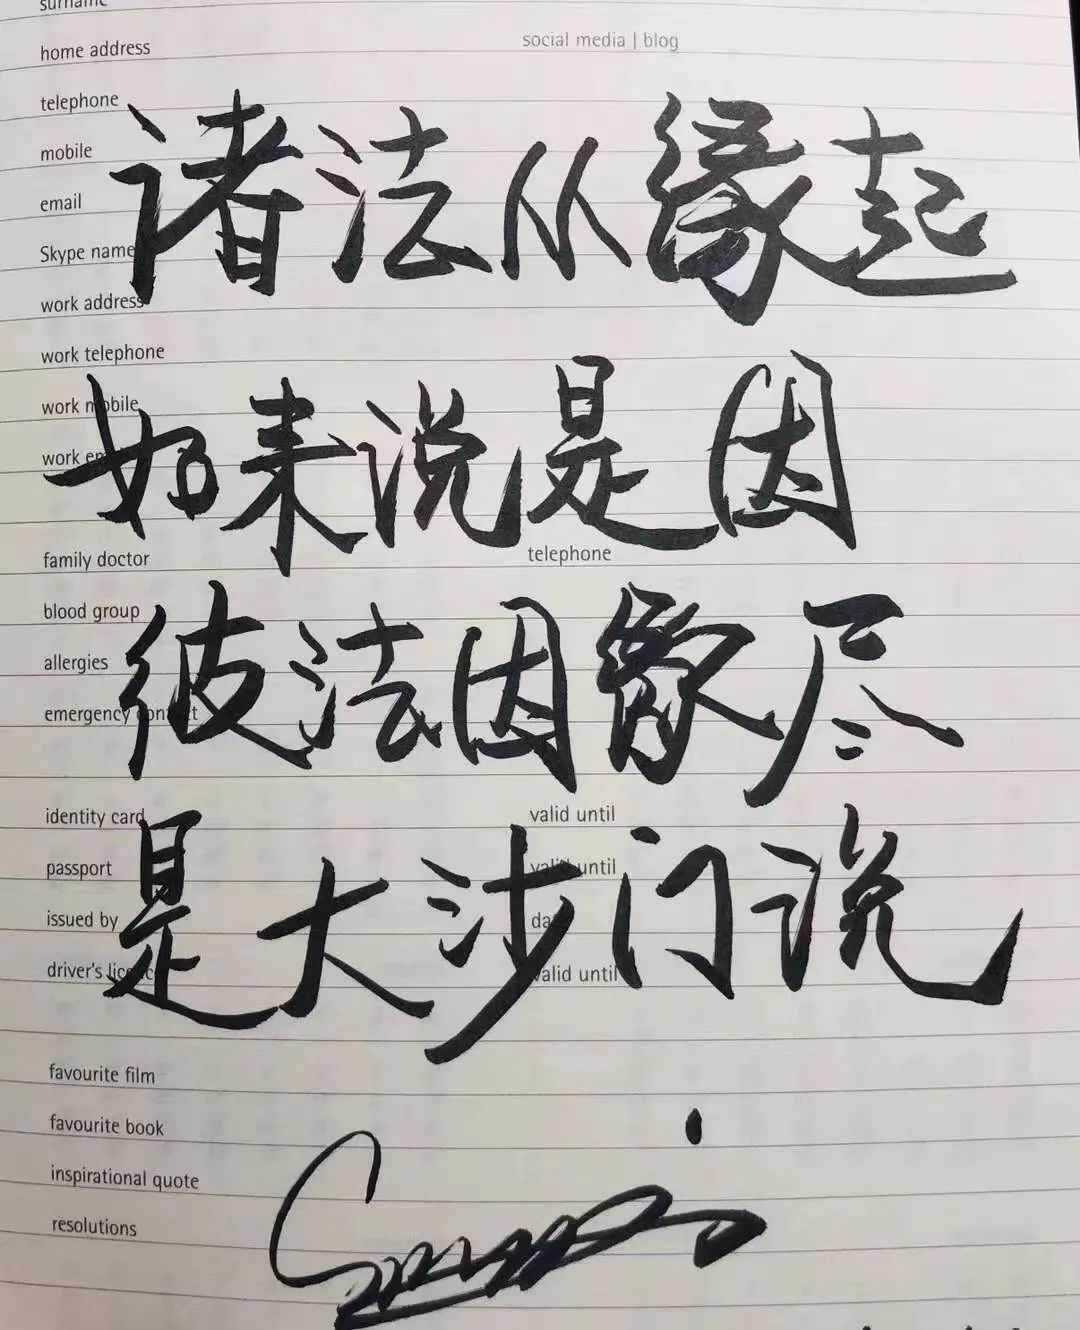 surname
home address
social media | blog
telephone
mobile
email
Skype name
work address
work telephone
work mobile
work
family doctor
telephone
blood group
allergies
emergency contact
identity card
valid until
passport
valid until
issued by
driver's licence
valid until
favourite film
favourite book
inspirational quote
resolutions
诸法从缘起
如来说是因
彼法因缘尽
是大沙门说